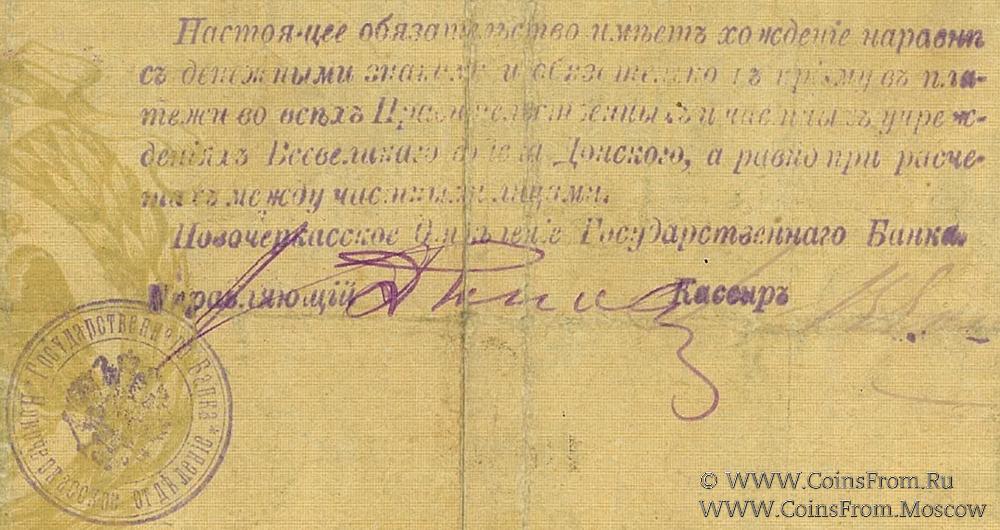 Настоящее обязательство имѣетъ хожденіе наравнѣ
съ денежными знаками и обязательно къ пріему въ пла-
тежи во всѣхъ Правительственныхъ и частныхъ учреж-
деніяхъ Всевеликаго войска Донского, а равно при расче-
тахъ между частными лицами.
Новочеркасское Отдѣленіе Государственнаго Банка.
Управляющій Кассиръ
Новочеркасское отдѣленіе * Государственнаго Банка *
© WWW.CoinsFrom.Ru
WWW.CoinsFrom.Moscow